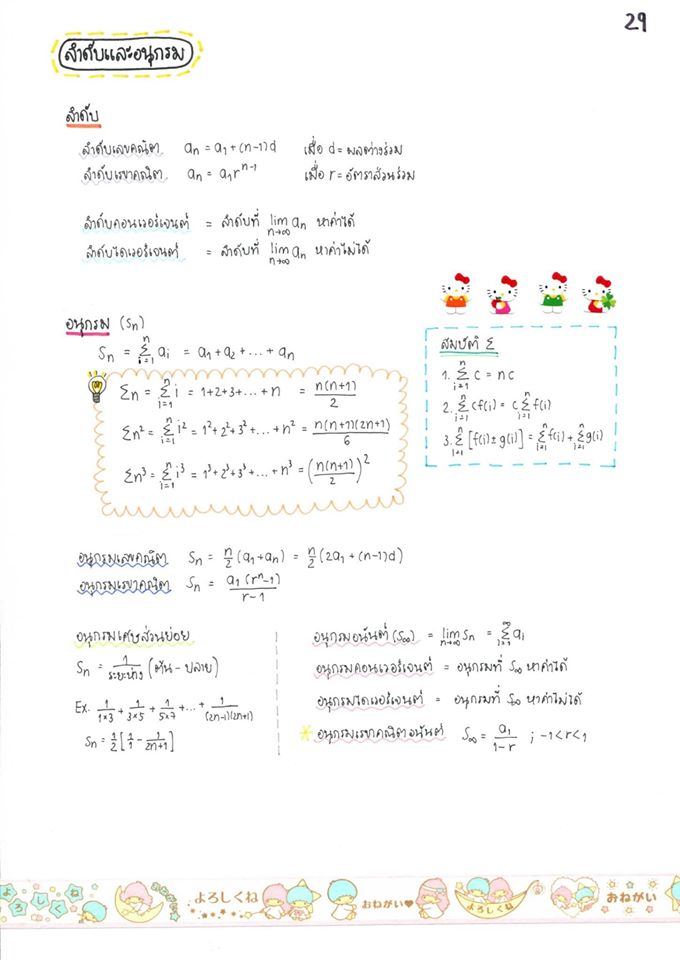 29
ลำดับและอนุกรม
ลำดับ
ลำดับเลขคณิต aₙ = a₁ + (n-1)d เมื่อ d = ผลต่างร่วม
ลำดับเรขาคณิต aₙ = a₁rⁿ⁻¹ เมื่อ r = อัตราส่วนร่วม
ลำดับคอนเวอร์เจนต์ = ลำดับที่ lim n→∞ aₙ หาค่าได้
ลำดับไดเวอร์เจนต์ = ลำดับที่ lim n→∞ aₙ หาค่าไม่ได้
อนุกรม (Sₙ)
Sₙ = Σⁿᵢ₌₁ aᵢ = a₁ + a₂ + ... + aₙ
Σn = Σⁿᵢ₌₁ i = 1+2+3+...+n = n(n+1)/2
Σn² = Σⁿᵢ₌₁ i² = 1²+2²+3²+...+n² = n(n+1)(2n+1)/6
Σn³ = Σⁿᵢ₌₁ i³ = 1³+2³+3³+...+n³ = (n(n+1)/2)²
สมบัติ Σ
1. Σⁿᵢ₌₁ c = nc
2. Σⁿᵢ₌₁ cf(i) = c Σⁿᵢ₌₁ f(i)
3. Σⁿᵢ₌₁ [f(i) ± g(i)] = Σⁿᵢ₌₁ f(i) ± Σⁿᵢ₌₁ g(i)
อนุกรมเลขคณิต Sₙ = n/2 (a₁+aₙ) = n/2 (2a₁ + (n-1)d)
อนุกรมเรขาคณิต Sₙ = a₁(rⁿ-1)/r-1
อนุกรมเศษส่วนย่อย
Sₙ = 1/ระยะห่าง (ต้น - ปลาย)
Ex. 1/1×3 + 1/3×5 + 1/5×7 + ... + 1/(2n-1)(2n+1)
Sₙ = 1/2 [1/1 - 1/2n+1]
อนุกรมอนันต์ (S∞) = lim n→∞ Sₙ = Σ^∞ᵢ₌₁ aᵢ
อนุกรมคอนเวอร์เจนต์ = อนุกรมที่ S∞ หาค่าได้
อนุกรมไดเวอร์เจนต์ = อนุกรมที่ S∞ หาค่าไม่ได้
* อนุกรมเรขาคณิตอนันต์ S∞ = a₁/1-r ; -1<r<1
よろしくね おねがい よろしくね おねがい♥ よろしくね おねがい